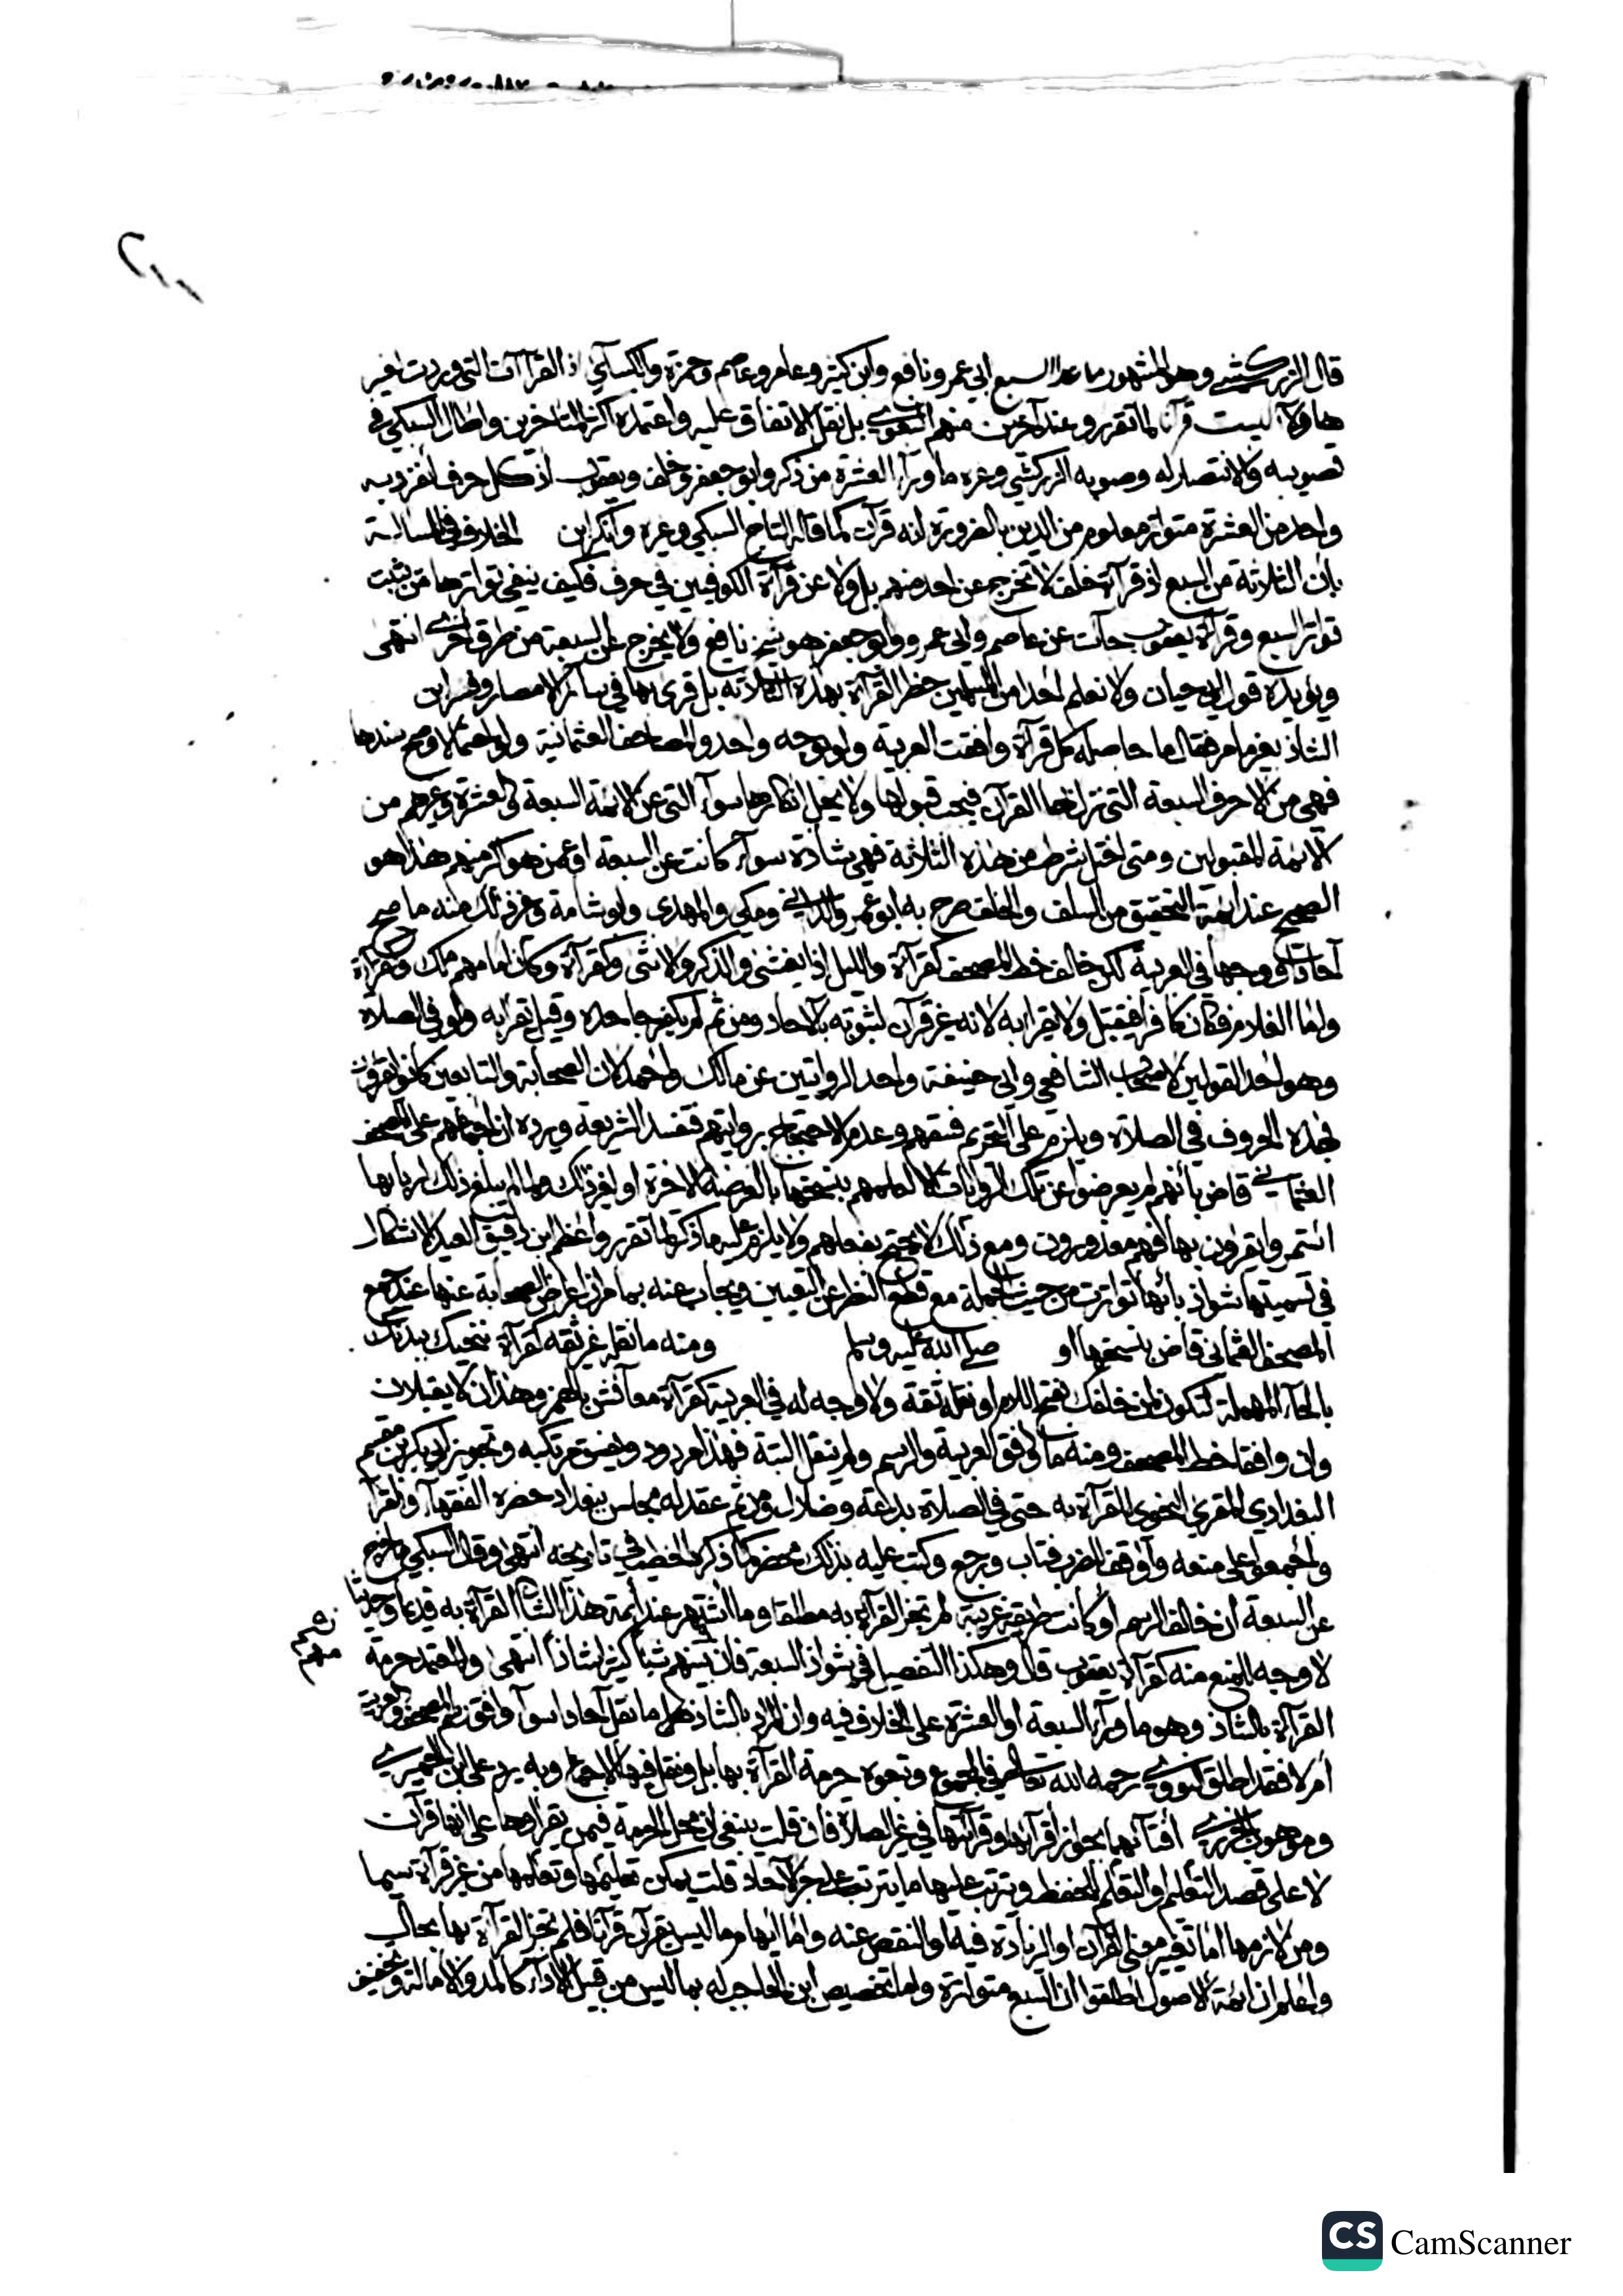 قال الزركشي وهو المشهور ما عدا السبع ابي عمرو ونافع وابن كثير وعامر وعاصم وحمزة والكسآئي اذ القراآت التي وردت
ليست قرآنا لما تقرر وعند آخرين منهم البغوي بل نقل الاتفاق عليه واعتمده اكثر المتاخرين واطال السبكي في
تصويبه والانتصار له وصوبه الزركشي وغيره ما ورآء العشرة من ذكر وابو جعفر وخلف ويعقوب اذ كل حرف انفرد به
واحد من العشرة متواتر معلوم من الدين بالضرورة انه قرآن كما قاله التاج السبكي وغيره وانكر ابن الخلاف في المسالة
بان الثلاثة من السبع اذ قرآة خلف لا تخرج عن احد منهم بل ولا عن قرآة الكوفيين في حرف فكيف ينفي تواترها من يثبت
تواتر السبع وقرآة يعقوب جآت عن عاصم وابي عمرو وابو جعفر هو شيخ نافع ولا يخرج عن السبعة من طرق اخرى انتهى
ويؤيده قول ابي حيان ولا نعلم احدا من المسلمين حظر القرآة بهذه الثلاثة بل قرئ بها في سائر الامصار وفسر ابن
الشاذ بغير ما مر فقال ما حاصله كل قرآة وافقت العربية ولو بوجه واحد والمصاحف العثمانية ولو احتمالا وصح سندها
فهي من الاحرف السبعة التي نزل بها القرآن فيجب قبولها ولا يحل انكارها سوآء التي عن الائمة السبعة والعشرة وغيرهم من
الائمة المقبولين ومتى اختل شرط من هذه الثلاثة فهي شاذة سوآء كانت عن السبعة او عمن هو اكبر منهم هذا هو
الصحيح عند ائمة التحقيق من السلف والخلف صرح به ابو عمرو الداني ومكي والمهدوي وابو شامة وغيره ذلك منه ما صح
آحادا ووجها في العربية لكن خالف خط المصحف كقرآة والليل اذا يغشى والذكر والانثى وكقرآة وكان امامهم ملك وقرآة
واما الغلام فكان كافرا فيقبل ولا يقرا به لانه غير قرآن لثبوته بالآحاد ومن ثم لم يكفر جاحده وقيل يقرا به ولو في الصلاة
وهو احد القولين لاصحاب الشافعي وابي حنيفة واحد الروايتين عن مالك واحمد لان الصحابة والتابعين كانوا يقرؤن
بهذه الحروف في الصلاة ويلزم على التحريم فسقهم وعدم الاحتجاج بروايتهم فتفسد الشريعة ويرده ان اجماعهم على المصحف
العثماني قاض بانهم لم يعرضوا عن تلك الروايات الا لعلمهم بنسخها بالعرضة الاخيرة او لغير ذلك ولما لم يبلغ ذلك اربابها
استمروا يقرؤن بها فهم معذورون ومع ذلك لا يحتج بفعلهم ولا يلزم عليه ما ذكر لما تقرر واعظم ابن دقيق العيد الاشكال
في تسميتها شواذ بانها تواترت من حيث الجملة مع قطع النظر عن التعيين ويجاب عنه بما مر ان اعراض الصحابة عنها عند جمع
المصحف العثماني قاض بنسخها او صلى الله عليه وسلم ومنه ما نقله غير ثقة كقرآة ننحيك ببدنك
بالحآء المهملة لتكون لمن خلفك بفتح اللام او نقله ثقة ولا وجه له في العربية كقرآة معآئش بالهمز وهذان لا يقبلان
وان وافقا خط المصحف ومنه ما وافق العربية والرسم ولم ينقل البتة فهذا مردود ويفسق مرتكبه وتجويز ابي بكر بن مقسم
البغدادي المقرئ النحوي القرآة به حتى في الصلاة بدعة وضلال ومن ثم عقد له مجلس ببغداد حضره الفقهآء والقرآ
واجمعوا على منعه واوقف للضرب فتاب ورجع وكتب عليه بذلك محضر كما ذكره الخطيب في تاريخه انتهى وقال السبكي ما خرج
عن السبعة ان خالف الرسم او كانت طريقه غريبة لم تجز القرآة به مطلقا وما اشتهر عند ائمة هذا الشان القرآة به قديما وحديثا
لا وجه للمنع منه كقرآة يعقوب قال وهكذا التفصيل في شواذ السبعة فان بينهم شيئا كثيرا شاذا انتهى والمعتمد حرمة
القرآة بالشاذ وهو ما ورآء السبعة او العشرة على الخلاف فيه وان المراد بالشاذ كل ما نقل آحادا سوآء وافق رسم المصحف والعربية
ام لا فقد اطلق النووي رحمه الله تعالى في المجموع وغيره حرمة القرآة بها بل ونقل فيها الاجماع وبه يرد على ابن الحميري
وموهوب الجزري افتآئهما بجواز اقرآئها وقرآتها في غير الصلاة فان قلت ينبغي ان محل الحرمة فيمن يقراوها على انها قرآن
لا على قصد التعليم او التعلم للحفظ وترتب عليها ما يترتب على خبر الآحاد قلت يمكن تعليمها وتعلمها من غير قرآة سيما
ومن لازمها اما تغيير معنى القرآن او الزيادة فيه او النقص عنه واما ايهام ما ليس بقرآن قرآنا فلم تجز القرآة بها بحال
واعلم ان ائمة الاصول اطلقوا ان السبع متواترة واما تخصيص ابن الحاجب له بما ليس من قبيل الادآء كالمد والامالة وتخفيف
CS CamScanner